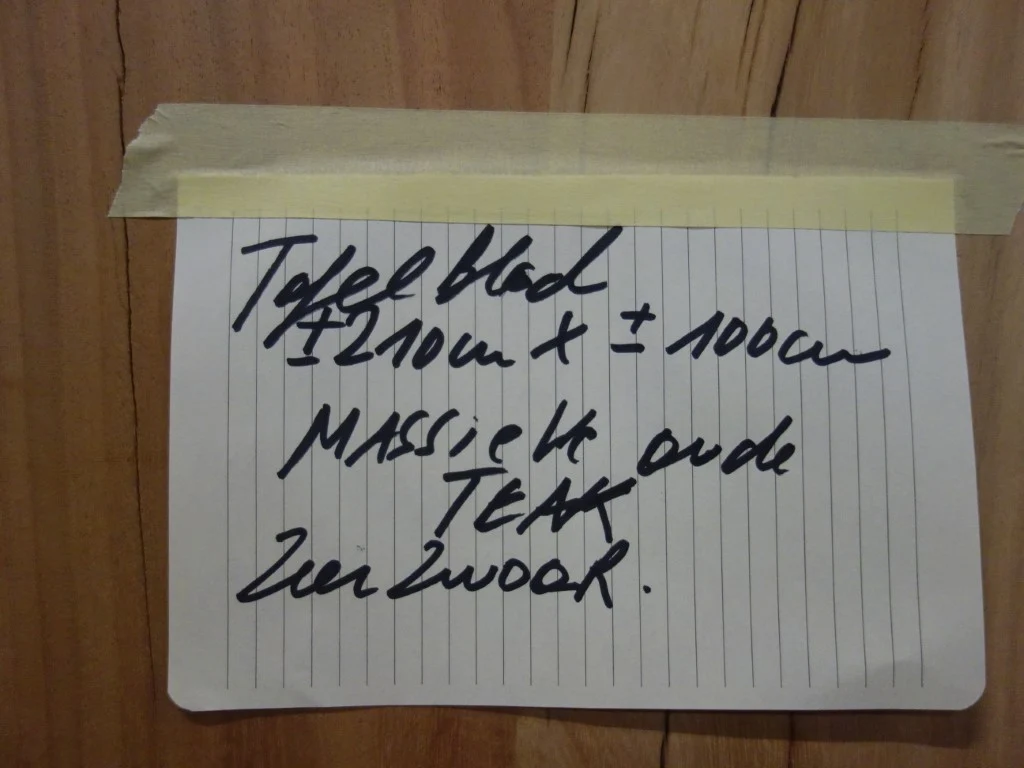 Tafelblad
±210cm x ±100cm
MASSieve oude
TEAK
Zeer ZwaaR.